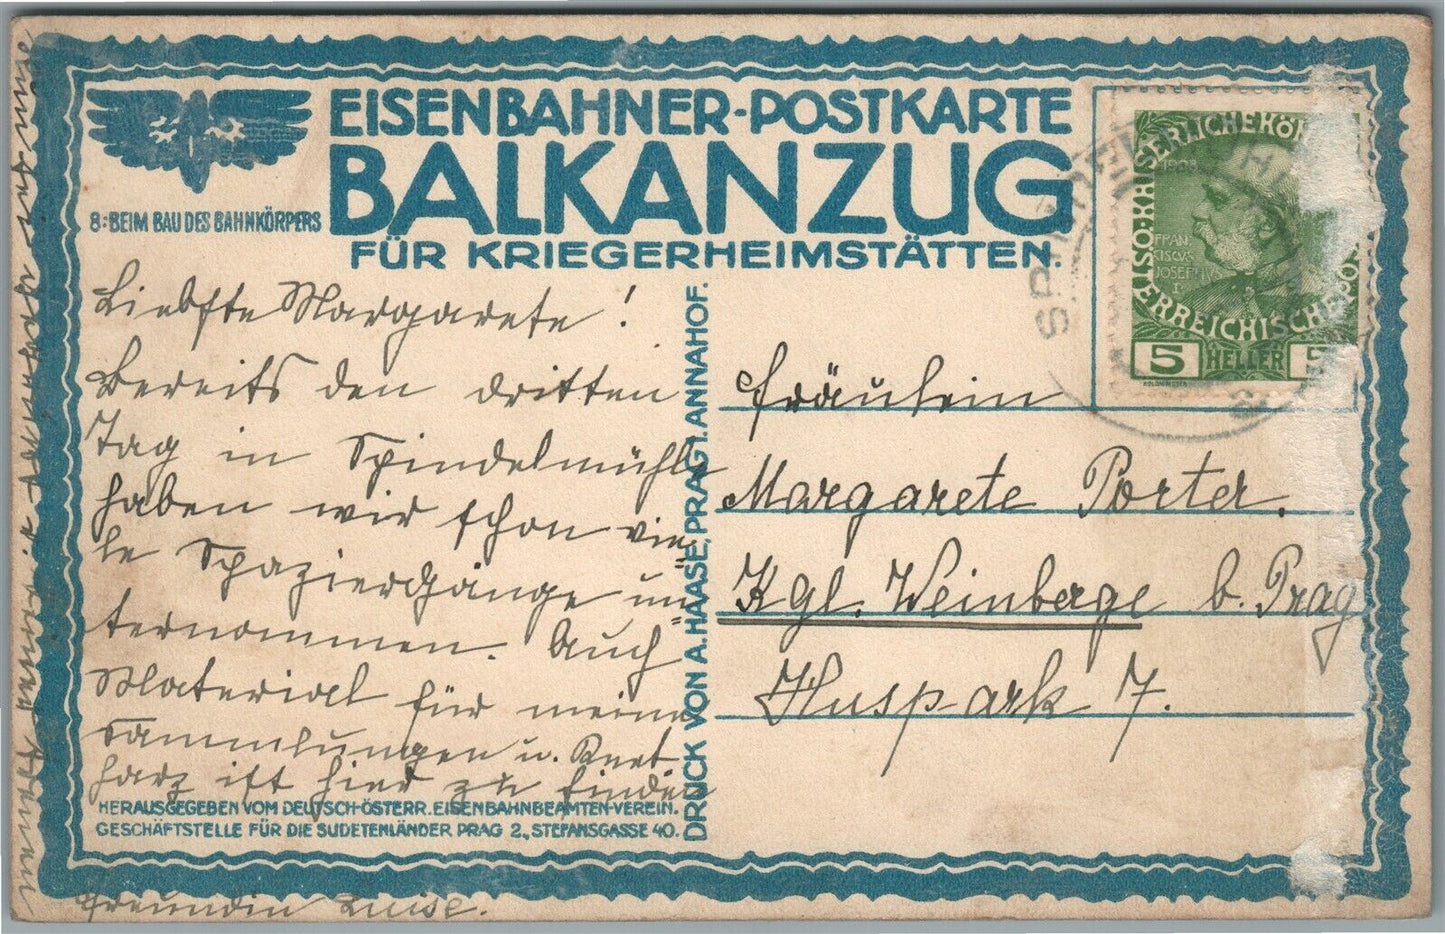 EISENBAHNER-POSTKARTE
BALKANZUG
FÜR KRIEGERHEIMSTÄTTEN.
8: BEIM BAU DES BAHNKÖRPERS
Liebste Margarete!
Bereits den dritten
Tag in Spindelmühle
haben wir schon vie
le Spaziergänge un
ternommen. Auch
Material für meine
Sammlungen u.
harz ist hier zu finden
HERAUSGEGEBEN VOM DEUTSCH-ÖSTERR. EISENBAHNBEAMTEN-VEREIN.
GESCHÄFTSTELLE FÜR DIE SUDETENLÄNDER PRAG 2., STEFANSGASSE 40.
Freundin Luise.
DRUCK VON A. HAASE, PRAG 1. ANNAHOF.
KAISERLICHE KÖN
ÖSTERREICHISCHE PO
1908
FRAN
CISCVS
JOSEPHVS
I
5 HELLER 5
SPINDEL
Fräulein
Margarete Porter.
Kgl. Weinberge b. Prag
Huspark 7.